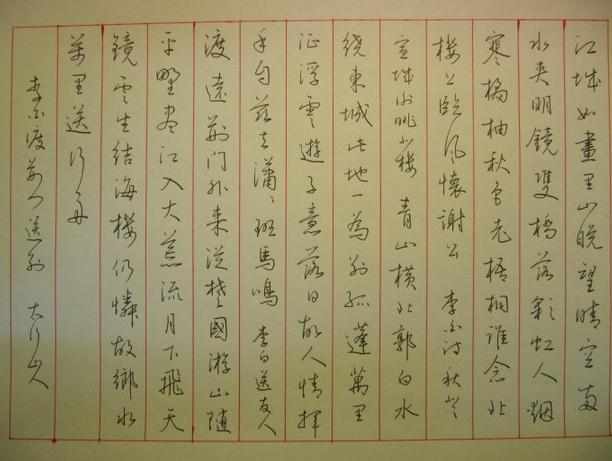 江城如畫里山晚望晴空兩
水夾明鏡雙橋落彩虹人烟
寒橘柚秋色老梧桐誰念北
樓上臨風懷謝公 李白诗秋登
宣城谢眺北樓 青山横北郭白水
绕東城此地一為别孤蓬萬里
征浮雲遊子意落日故人情揮
手自兹去瀟、班馬鳴 李白送友人
渡遠荆门外来從楚國游山随
平野尽江入大荒流月下飛天
鏡雲生结海樓仍憐故鄉水
萬里送行舟
李白渡荆门送别 大行山人